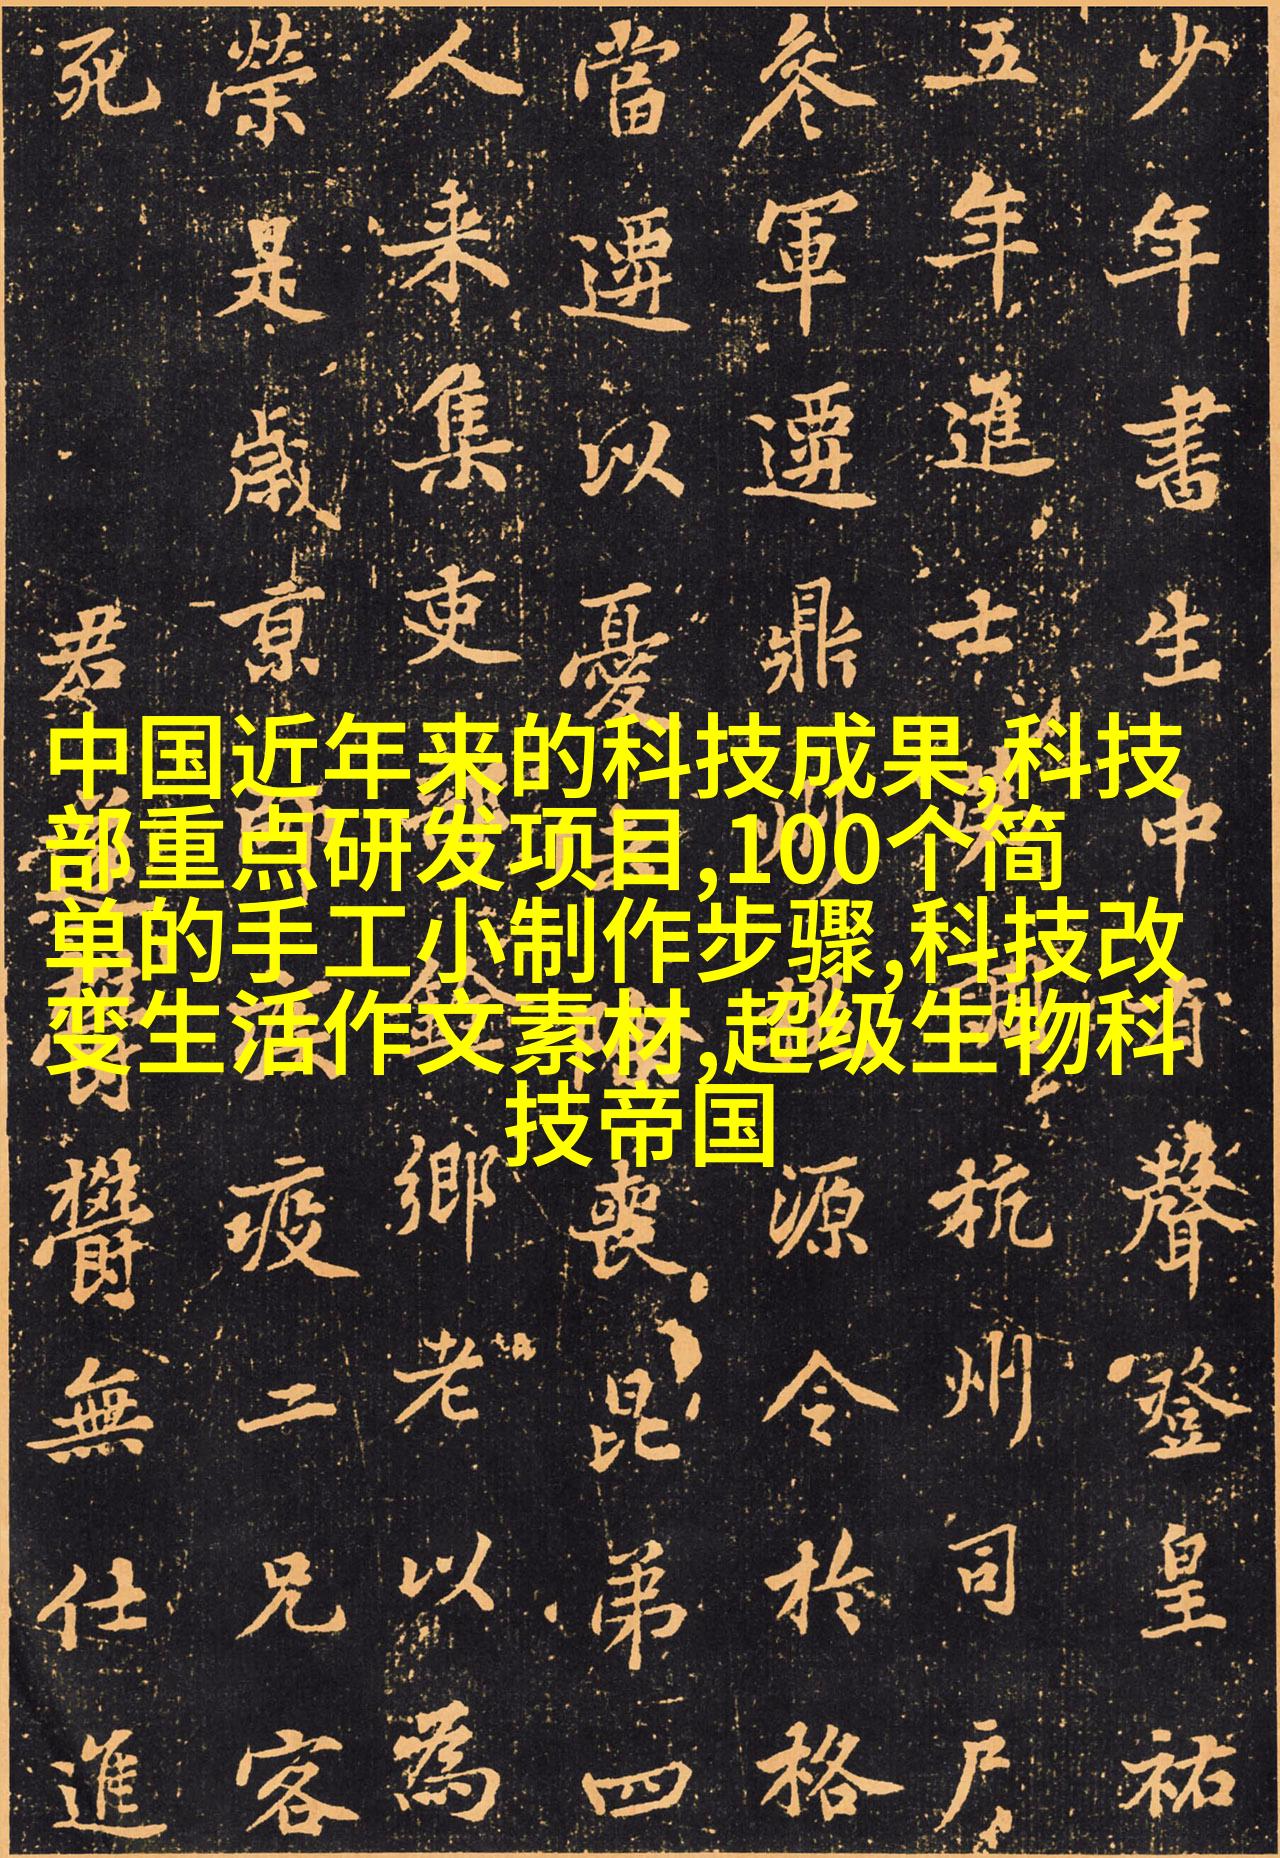 中国近年来的科技成果,科技
部重点研发项目,100个简
单的手工小制作步骤,科技改
变生活作文素材,超级生物科
技帝国
少年書生中有聲登皇祐
五年進士杭州司戶
參軍遷鼎州源令於格
當遷以憂去喪昆弟四
人来集吏金鄉老以為
榮是歲京疫二兄客
死君鬱鬱無仕進